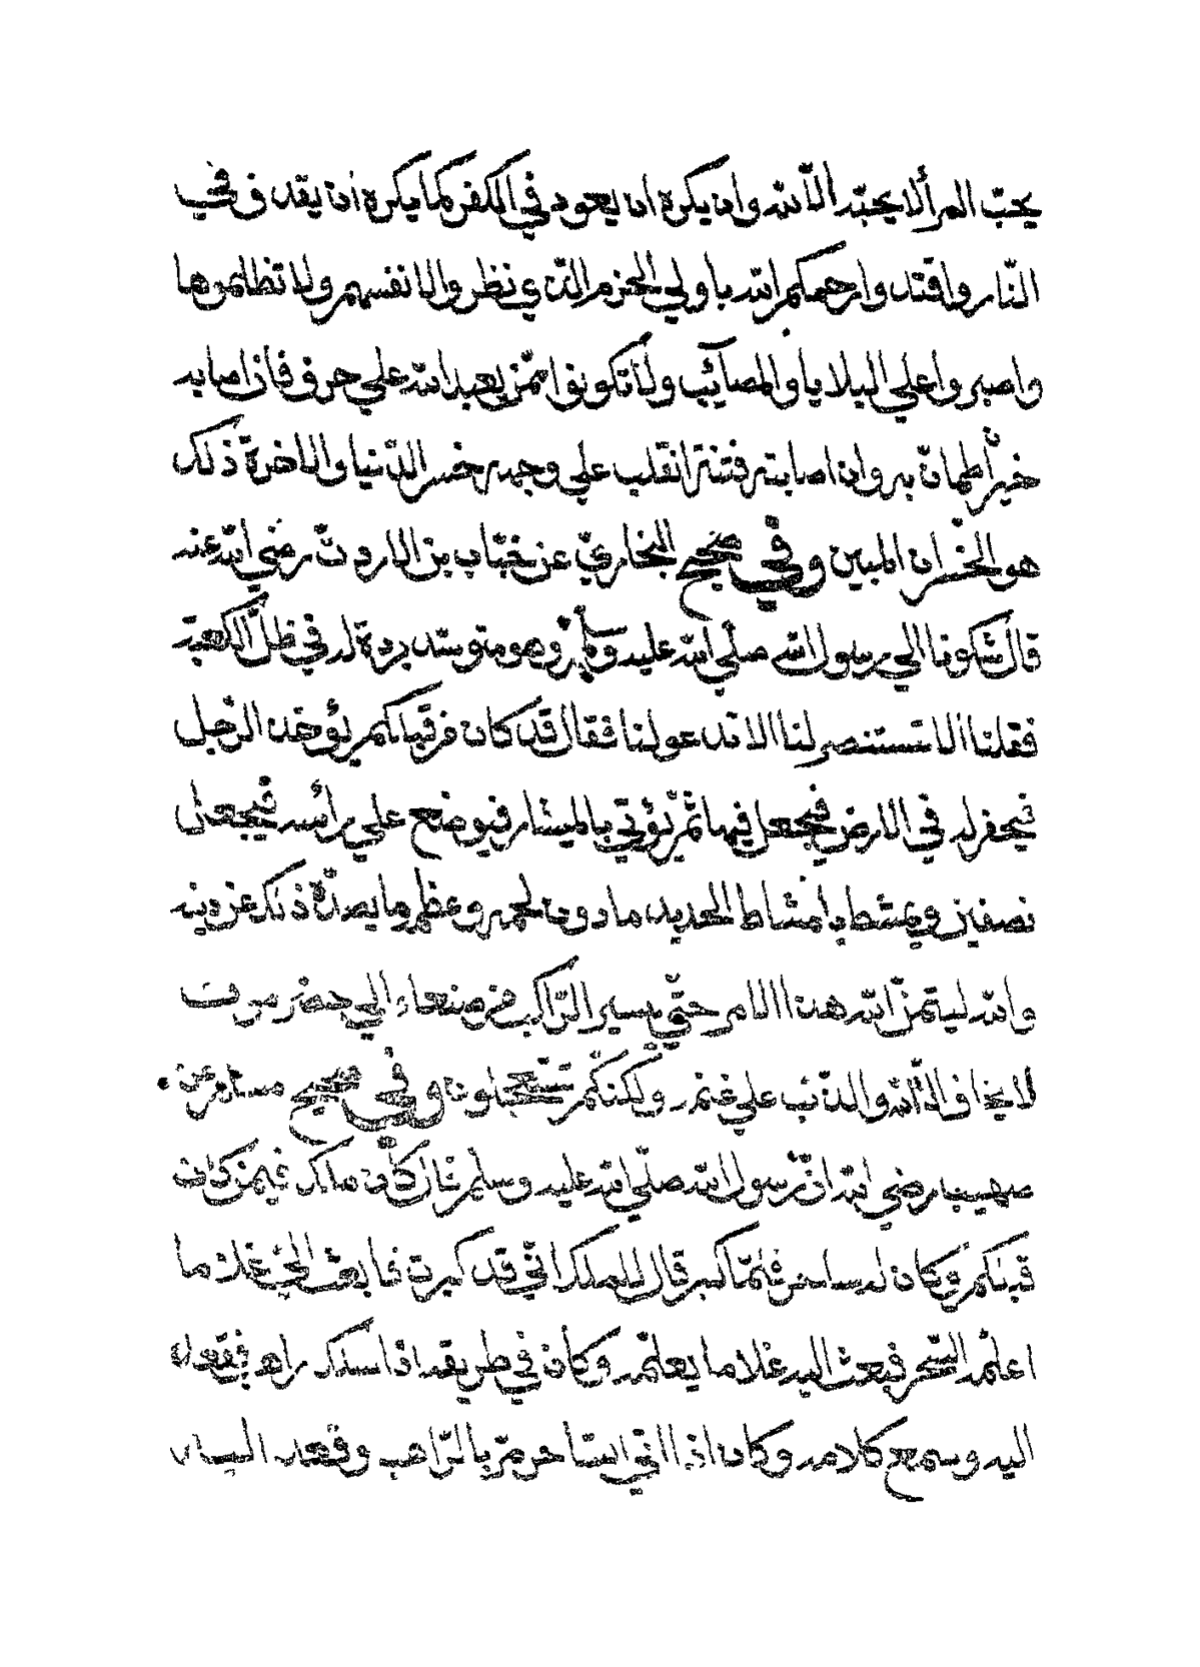 يحبّ المرأ لا يحبّه الّا لله وان يكره ان يعود في الكفر كما يكره ان يقذف في
النّار واقتد وارحمكم الله يا ولي الحزم الذي نظروا لانفسهم ولا تظالموها
واصبروا علي البلايا والمصآئب ولا تكونوا ممّن يعبد الله علي حرف فان اصابه
خير أطمانّ به وان اصابته فتنة انقلب علي وجهه خسر الدّنيا والاخرة ذلك
هو الخسران المبين وفي صحيح البخاريّ عن خبّاب بن الاردتّ رضي الله عنه
قال شكونا الي رسول الله صلّي الله عليه وسلّم وهو متوسّد بردة له في ظلّ الكعبة
فقلنا الا تستنصر لنا الا تدعو لنا فقال قد كان من قبلكم يؤخذ الرّجل
فيحفر له في الارض فيجعل فيها ثمّ يؤتي بالميشار فيوضع علي رأسه فيجعل
نصفين ويمشط بامشاط الحديد ما دون لحمه وعظمه ما يصدّه ذلك عن دينه
والله ليتمّنّ الله هذا الامر حتّي يسير الرّاكب من صنعاء الي حضرموت
لا يخاف الّا الله والذّئب علي غنمه ولكنّكم تستعجلونا وفي صحيح مسلم عن
صهيب رضي الله انّ رسول الله صلّي الله عليه وسلم قال كان ملك فيمن كان
قبلكم وكان له ساحر فلمّا كبر قال للملك انّي قد كبرت فابعث اليّ غلاما
اعلّمه السّحر فبعث اليه غلاما يعلّمه وكان في طريقه اذا سلك راهب فقعد
اليه وسمع كلامه وكان اذا اتي السّاحر مرّ بالرّاهب وقعد اليه